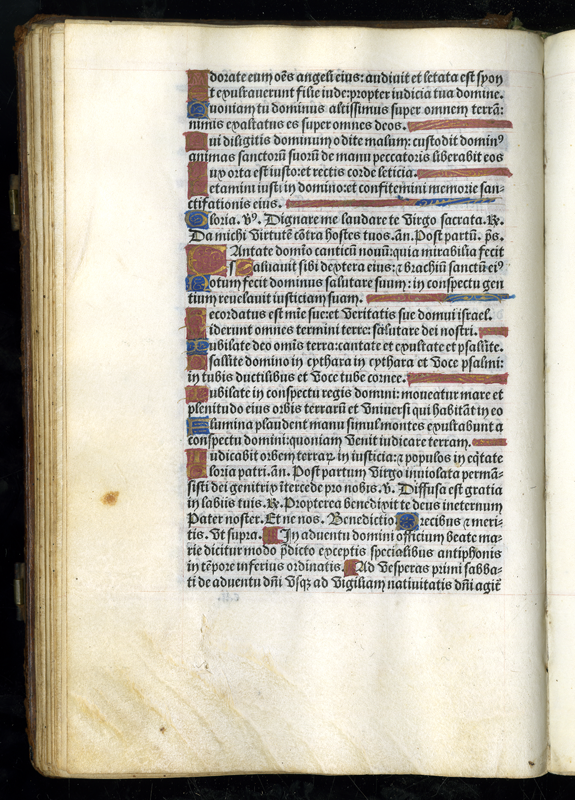 Adorate eum oēs angeli eius: audiuit et letata est syon
Et exultauerunt filie iude: propter iudicia tua domine.
Quoniam tu dominus altissimus super omnem terrā:
nimis exaltatus es super omnes deos.
Qui diligitis dominum odite malum: custodit dominꝰ
animas sanctorū suorū de manu peccatoris liberabit eos
Lux orta est iusto: et rectis corde leticia.
Letamini iusti in domino: et confitemini memorie san-
ctificationis eius.
Gloria. v̾. Dignare me laudare te Virgo sacrata. ℞.
Da michi Virtutē cōtra hostes tuos. añ. Post partū. ps̄.
Cantate domīo canticū nouū: quia mirabilia fecit
Saluauit sibi dextera eius: ⁊ brachiū sanctū eiꝰ
Notum fecit dominus salutare suum: in conspectu gen
tium reuelauit iusticiam suam.
Recordatus est mīe sue: et Veritatis sue domui israel.
Viderunt omnes termini terre: salutare dei nostri.
Jubilate deo omīs terra: cantate et exultate et psallite.
Psallite domino in cythara in cythara et Voce psalmi:
in tubis ductilibus et Voce tube cornee.
Jubilate in conspectu regis domini: moueatur mare et
plenitudo eius orbis terrarū et Vniuersi qui habitāt in eo
Flumina plaudent manu simul montes exultabunt a
conspectu domini: quoniam Venit iudicare terram.
Judicabit orbem terraꝝ in iusticia: ⁊ populos in eq̄tate
Gloria patri. añ. Post partum Virgo inuiolata permā-
sisti dei genitrix ītercede pro nobis. v. Diffusa est gratia
in labiis tuis. ℞. Propterea benedixit te deus ineternum
Pater noster. Et ne nos. Benedictio. Precibus ⁊ meri-
tis. Vt supra. In aduentu domini officium beate ma-
rie dicitur modo p̄dicto exceptis specialibus antiphonis
in tēpore inferius ordinatis. Ad Vesperas primi sabba-
ti de aduentu dñi Vsq̄ ad Vigiliam natiuitatis dñi agit̄